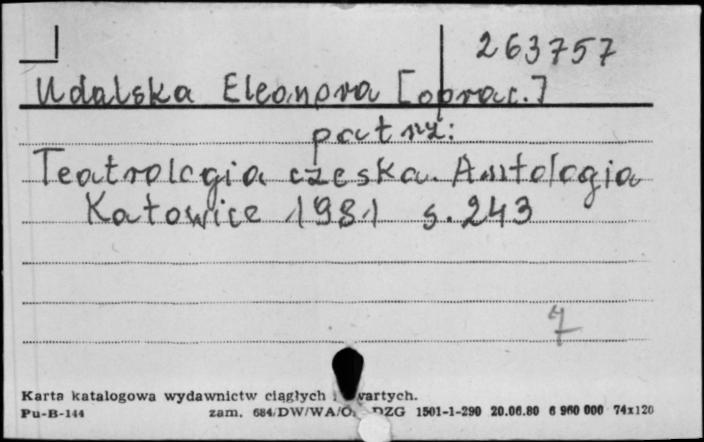 263757
Udalska Eleonora [oprac.]
patrz:
Teatrologia czeska. Antologia
Katowice 1981 s. 243
7
Karta katalogowa wydawnictw ciągłych i zwartych.
Pu-B-144 zam. 684/DW/WA/O. DZG 1501-1-290 20.06.80 6 960 000 74x120